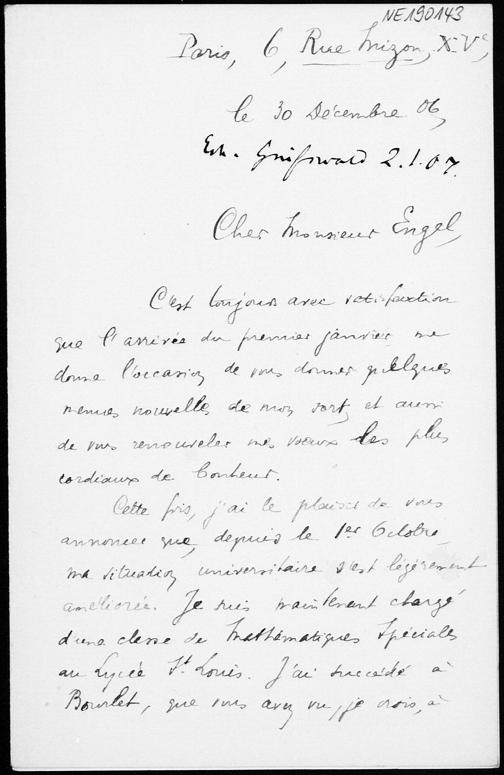 NE190143
Paris, 6, Rue Mizon, XVe,
le 30 Décembre 06,
Erh. Greifswald 2.1.07.
Cher Monsieur Engel,
C'est toujours avec satisfaction
que l'arrivée du premier janvier me
donne l'occasion de vous donner quelques
menues nouvelles de mon sort, et aussi
de vous renouveler mes vœux les plus
cordiaux de bonheur.
Cette fois, j'ai le plaisir de vous
annoncer que, depuis le 1er Octobre,
ma situation universitaire s'est légèrement
améliorée. Je suis maintenant chargé
d'une classe de Mathématiques Spéciales
au Lycée St Louis. J'ai succédé à
Bourlet, que vous avez vu, je crois, à